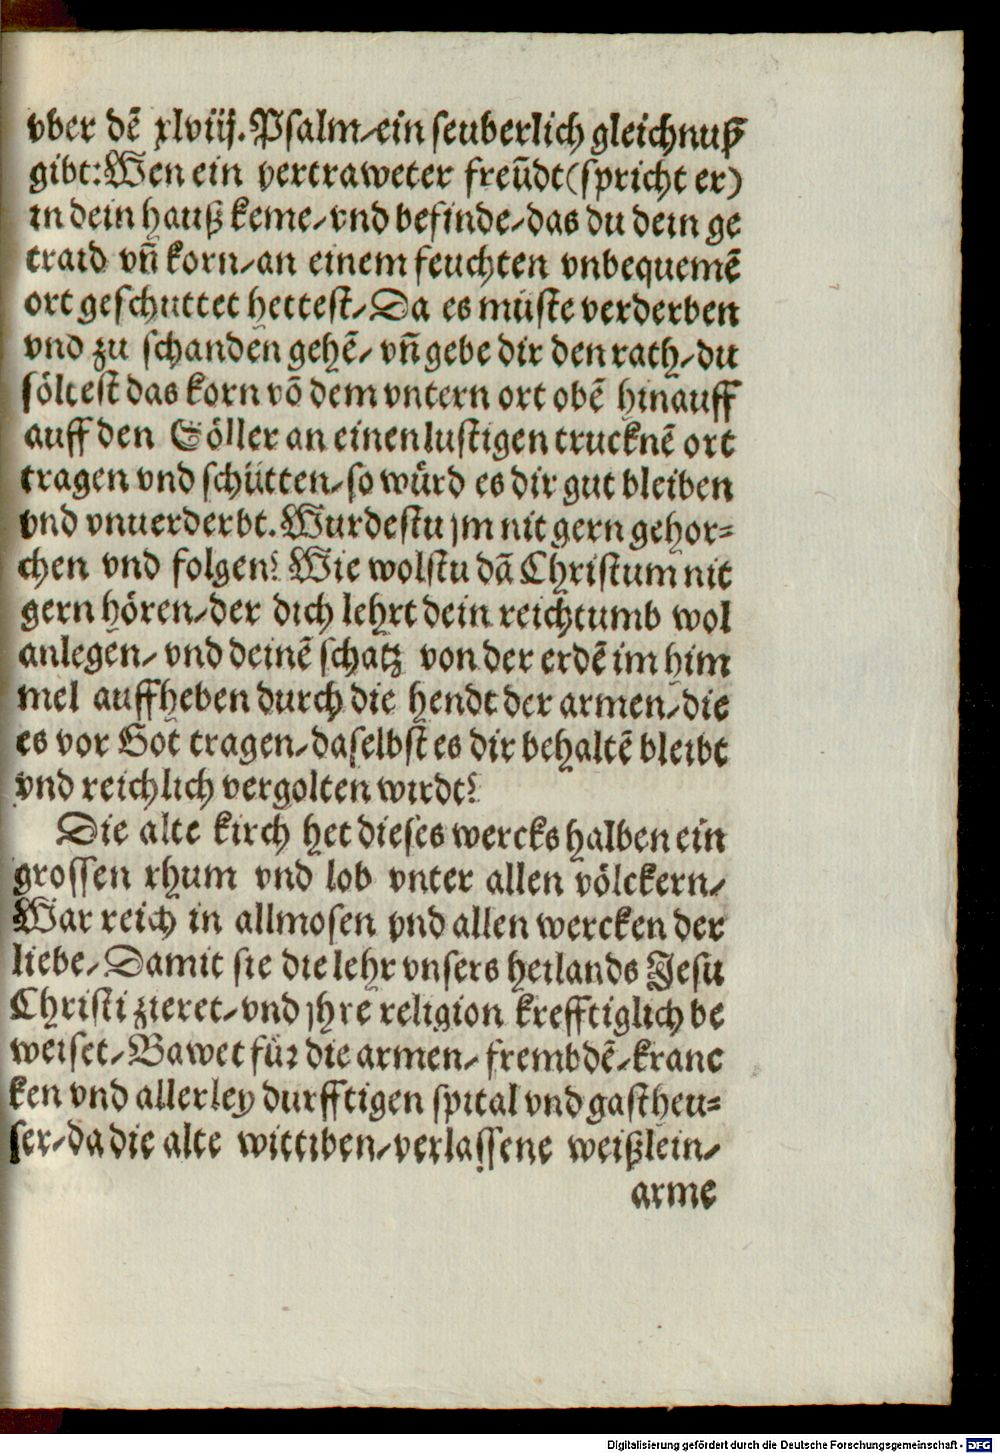 vber dē xlviij. Psalm/ein seuberlich gleichnuß
gibt: Wen ein vertraweter freũdt (spricht er)
in dein hauß keme/vnd befinde/das du dein ge
traid vñ korn/an einem feuchten vnbequemē
ort geschuttet hettest/Da es müste verderben
vnd zu schanden gehē/ vñ gebe dir den rath/du
söltest das korn võ dem vntern ort obē hinauff
auff den Söller an einen lustigen trucknē ort
tragen vnd schütten/so würd es dir gut bleiben
vnd vnuerderbt. Wurdestu jm nit gern gehor-
chen vnd folgen? Wie wolstu dã Christum nit
gern hören/der dich lehrt dein reichtumb wol
anlegen/ vnd deinē schatz von der erdē im him
mel auffheben durch die hendt der armen/die
es vor Got tragen/daselbst es dir behaltē bleibt
vnd reichlich vergolten wirdt?
Die alte kirch het dieses wercks halben ein
grossen rhum vnd lob vnter allen völckern/
War reich in allmosen vnd allen wercken der
liebe/Damit sie die lehr vnsers heilands Jesu
Christi zieret/vnd jhre religion krefftiglich be
weiset/Bawet für die armen/ frembdē/kranc
ken vnd allerley durfftigen spital vnd gastheu-
ser/da die alte wittiben/verlassene weißlein/
arme
Digitalisierung gefördert durch die Deutsche Forschungsgemeinschaft - DFG